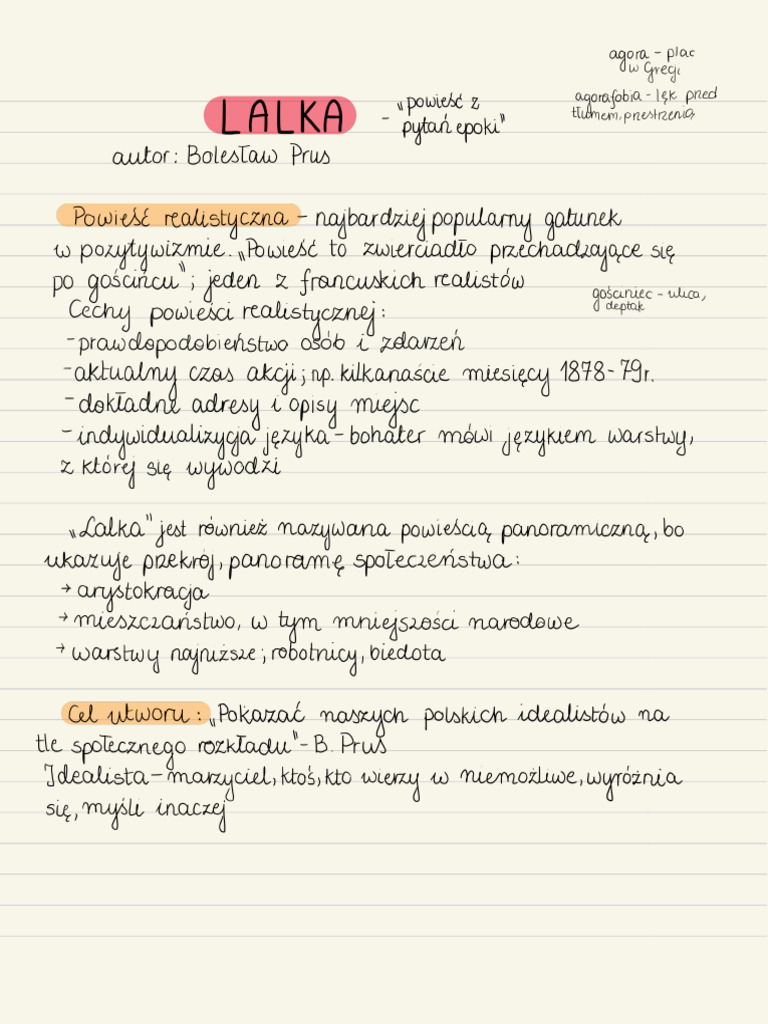 agora - plac
w Grecji
agorafobia - lęk przed
tłumem, przestrzenią
LALKA
- „powieść z
pytań epoki"
autor: Bolesław Prus
Powieść realistyczna - najbardziej popularny gatunek
w pozytywizmie. „Powieść to zwierciadło przechadzające się
po gościńcu"; jeden z francuskich realistów
gościniec - ulica,
deptak
Cechy powieści realistycznej:
- prawdopodobieństwo osób i zdarzeń
- aktualny czas akcji; np. kilkanaście miesięcy 1878-79r.
- dokładne adresy i opisy miejsc
- indywidualizycja języka - bohater mówi językiem warstwy,
z której się wywodzi
„Lalka" jest również nazywana powieścią panoramiczną, bo
ukazuje przekrój, panoramę społeczeństwa:
→ arystokracja
→ mieszczaństwo, w tym mniejszości narodowe
→ warstwy najniższe; robotnicy, biedota
Cel utworu: „Pokazać naszych polskich idealistów na
tle społecznego rozkładu" - B. Prus
Idealista - marzyciel, ktoś, kto wierzy w niemożliwe, wyróżnia
się, myśli inaczej